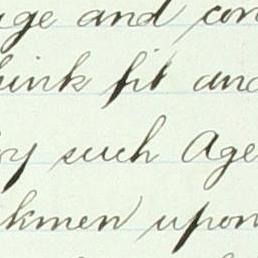 age and con
hink fit and
by such Age
kmen upon